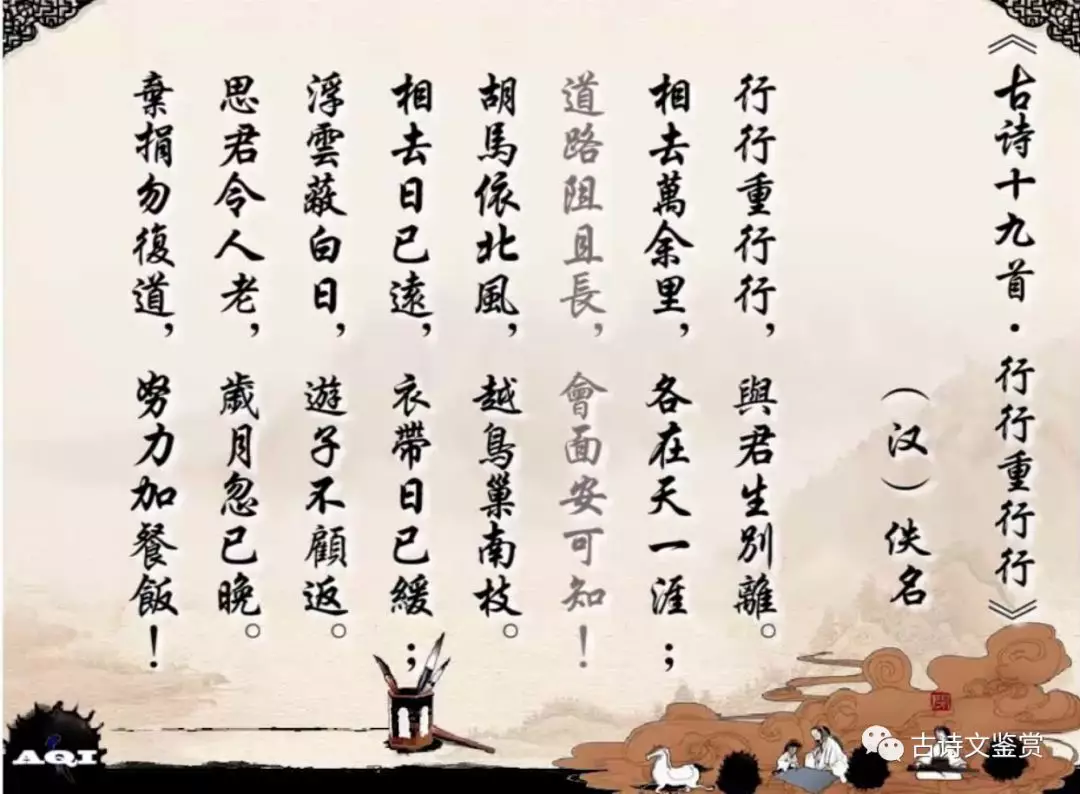 《古诗十九首·行行重行行》
（汉）佚名
行行重行行，與君生別離。
相去萬余里，各在天一涯；
道路阻且長，會面安可知！
胡馬依北風，越鳥巢南枝。
相去日已遠，衣帶日已緩；
浮雲蔽白日，遊子不顧返。
思君令人老，歲月忽已晚。
棄捐勿復道，努力加餐飯！
AQI
古诗文鉴赏